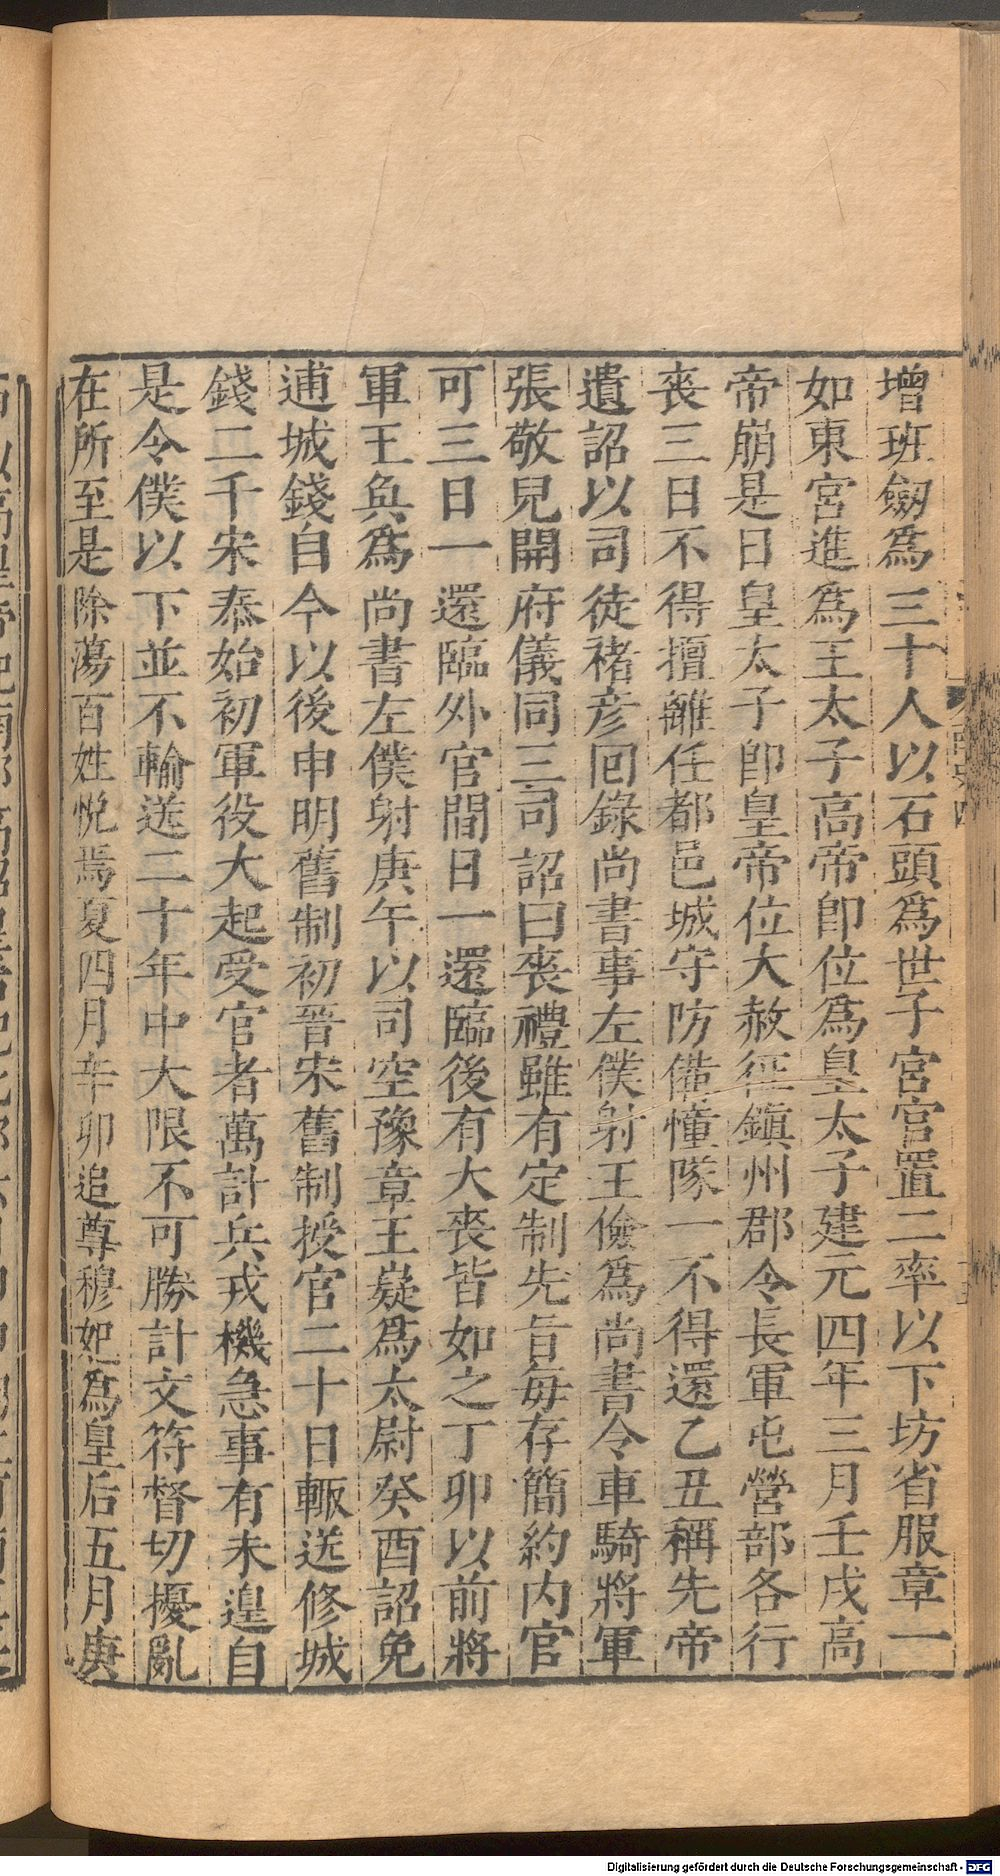 增班劒爲三十人以石頭爲世子宮宮置二率以下坊省服章一
如東宮進爲王太子高帝卽位爲皇太子建元四年三月壬戌高
帝崩是日皇太子卽皇帝位大赦征鎮州郡令長軍屯營部各行
喪三日不得擅離任都邑城守防備幢隊一不得還乙丑稱先帝
遺詔以司徒褚彦回錄尚書事左僕射王儉爲尚書令車騎將軍
張敬兒開府儀同三司詔曰喪禮雖有定制先旨每存簡約内官
可三日一還臨外官間日一還臨後有大喪皆如之丁卯以前將
軍王奐爲尚書左僕射庚午以司空豫章王嶷爲太尉癸酉詔免
逋城錢自今以後申明舊制初晉宋舊制授官二十日輙送修城
錢二千宋泰始初軍役大起受官者萬計兵戎機急事有未遑自
是令僕以下並不輸送二十年中大限不可勝計文符督切擾亂
在所至是除蕩百姓悅焉夏四月辛卯追尊穆妃爲皇后五月庚
Digitalisierung gefördert durch die Deutsche Forschungsgemeinschaft - DFG